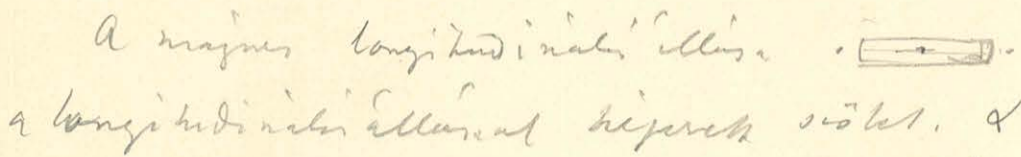 A mágnes longitudinális állása
a longitudinális állással képezett szöket. α